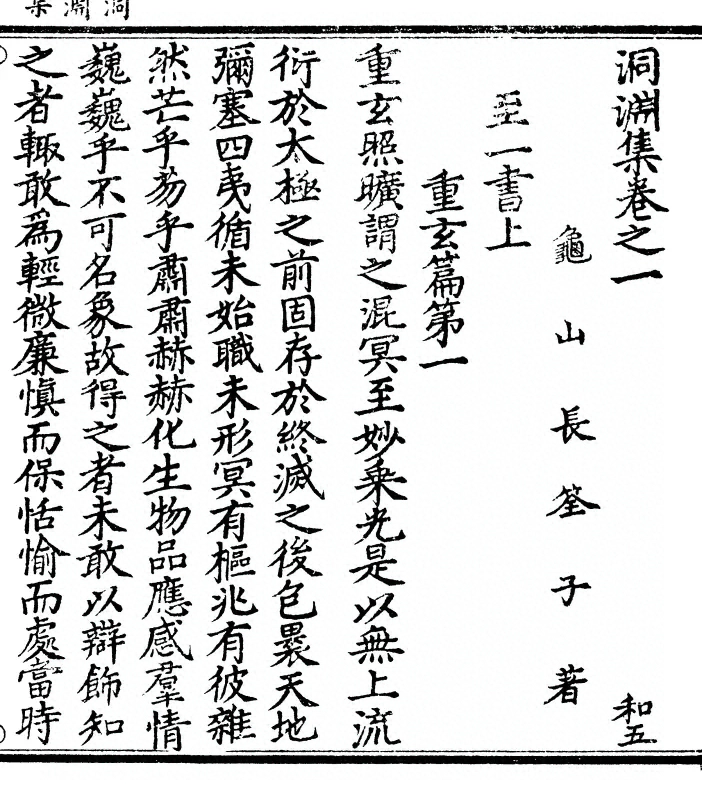 洞淵集
洞淵集卷之一
和五
龜山長筌子著
至一書上
重玄篇第一
重玄照曠謂之混冥至妙乗光是以無上流
衍於太極之前固存於終滅之後包褁天地
彌塞四夷循未始職未形冥有樞兆有彼雜
然芒乎芴乎肅肅赫赫化生物品應感羣情
巍巍乎不可名象故得之者未敢以辯飾知
之者輙敢爲輕微廉慎而保恬愉而處當時